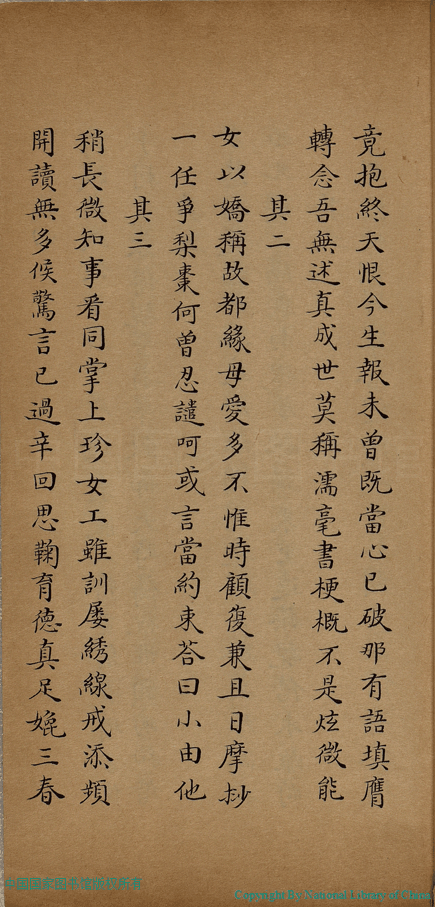 竟抱終天恨今生報未曾既當心已破那有語填膺
轉念吾無述真成世莫稱濡毫書梗概不是炫微能
其二
女以嬌稱故都緣母愛多不惟時顧復兼且日摩挱
一任爭梨棗何曾忍譴呵或言當約束荅曰小由他
其三
稍長微知事看同掌上珍女工雖訓屢綉線戒添頻
開讀無多候驚言已過辛回思鞠育德真足媲三春
中国国家图书馆版权所有
Copyright By National Library of China